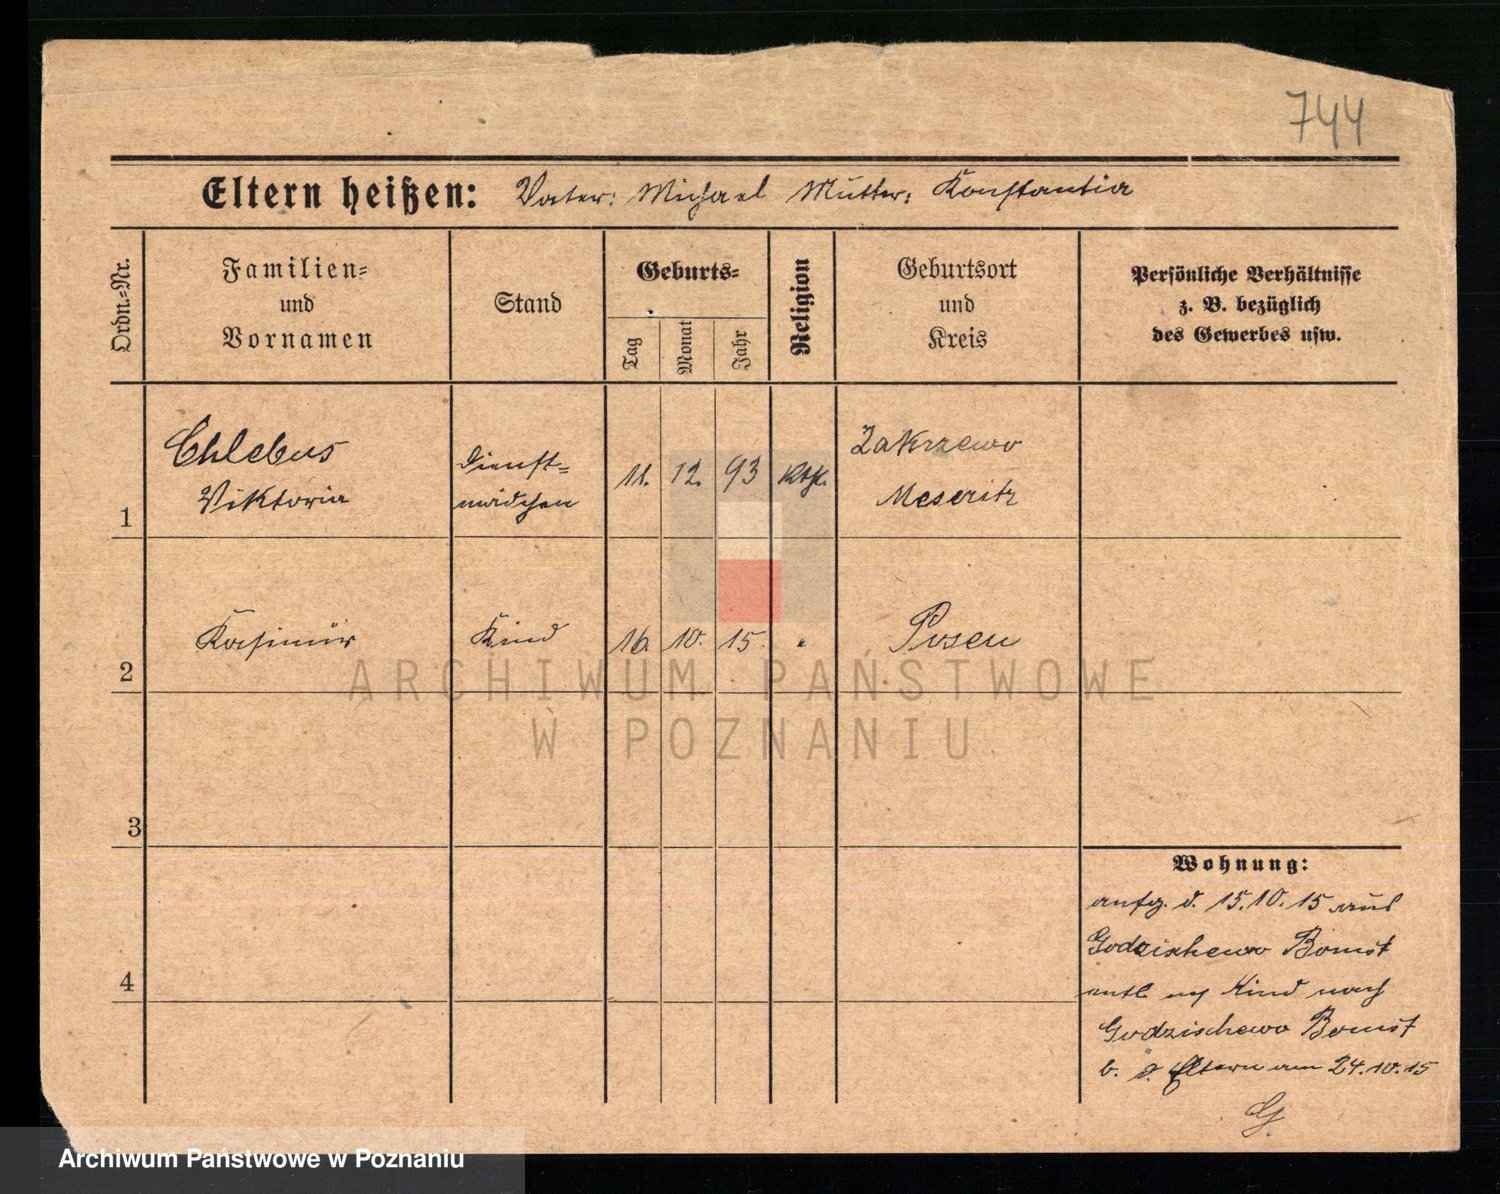 744
Eltern heißen: Vater: Michael Mutter: Konstantia
Ordn.-Nr.
Familien-
und
Vornamen
Stand
Geburts-
Tag
Monat
Jahr
Religion
Geburtsort
und
Kreis
Persönliche Verhältnisse
z. B. bezüglich
des Gewerbes usw.
1
Chlebus
Viktoria
Dienst-
mädchen
11. 12. 93
kth.
Zakrzewo
Meseritz
2
Kasimir
Kind
16. 10. 15.
"
Posen
ARCHIWUM PAŃSTWOWE
W POZNANIU
3
4
Wohnung:
aufg. d. 15.10.15 aus
Godzischewo Bomst
entl. Kind nach
Godzischewo Bomst
b. d. Eltern am 24.10.15
G.
Archiwum Państwowe w Poznaniu